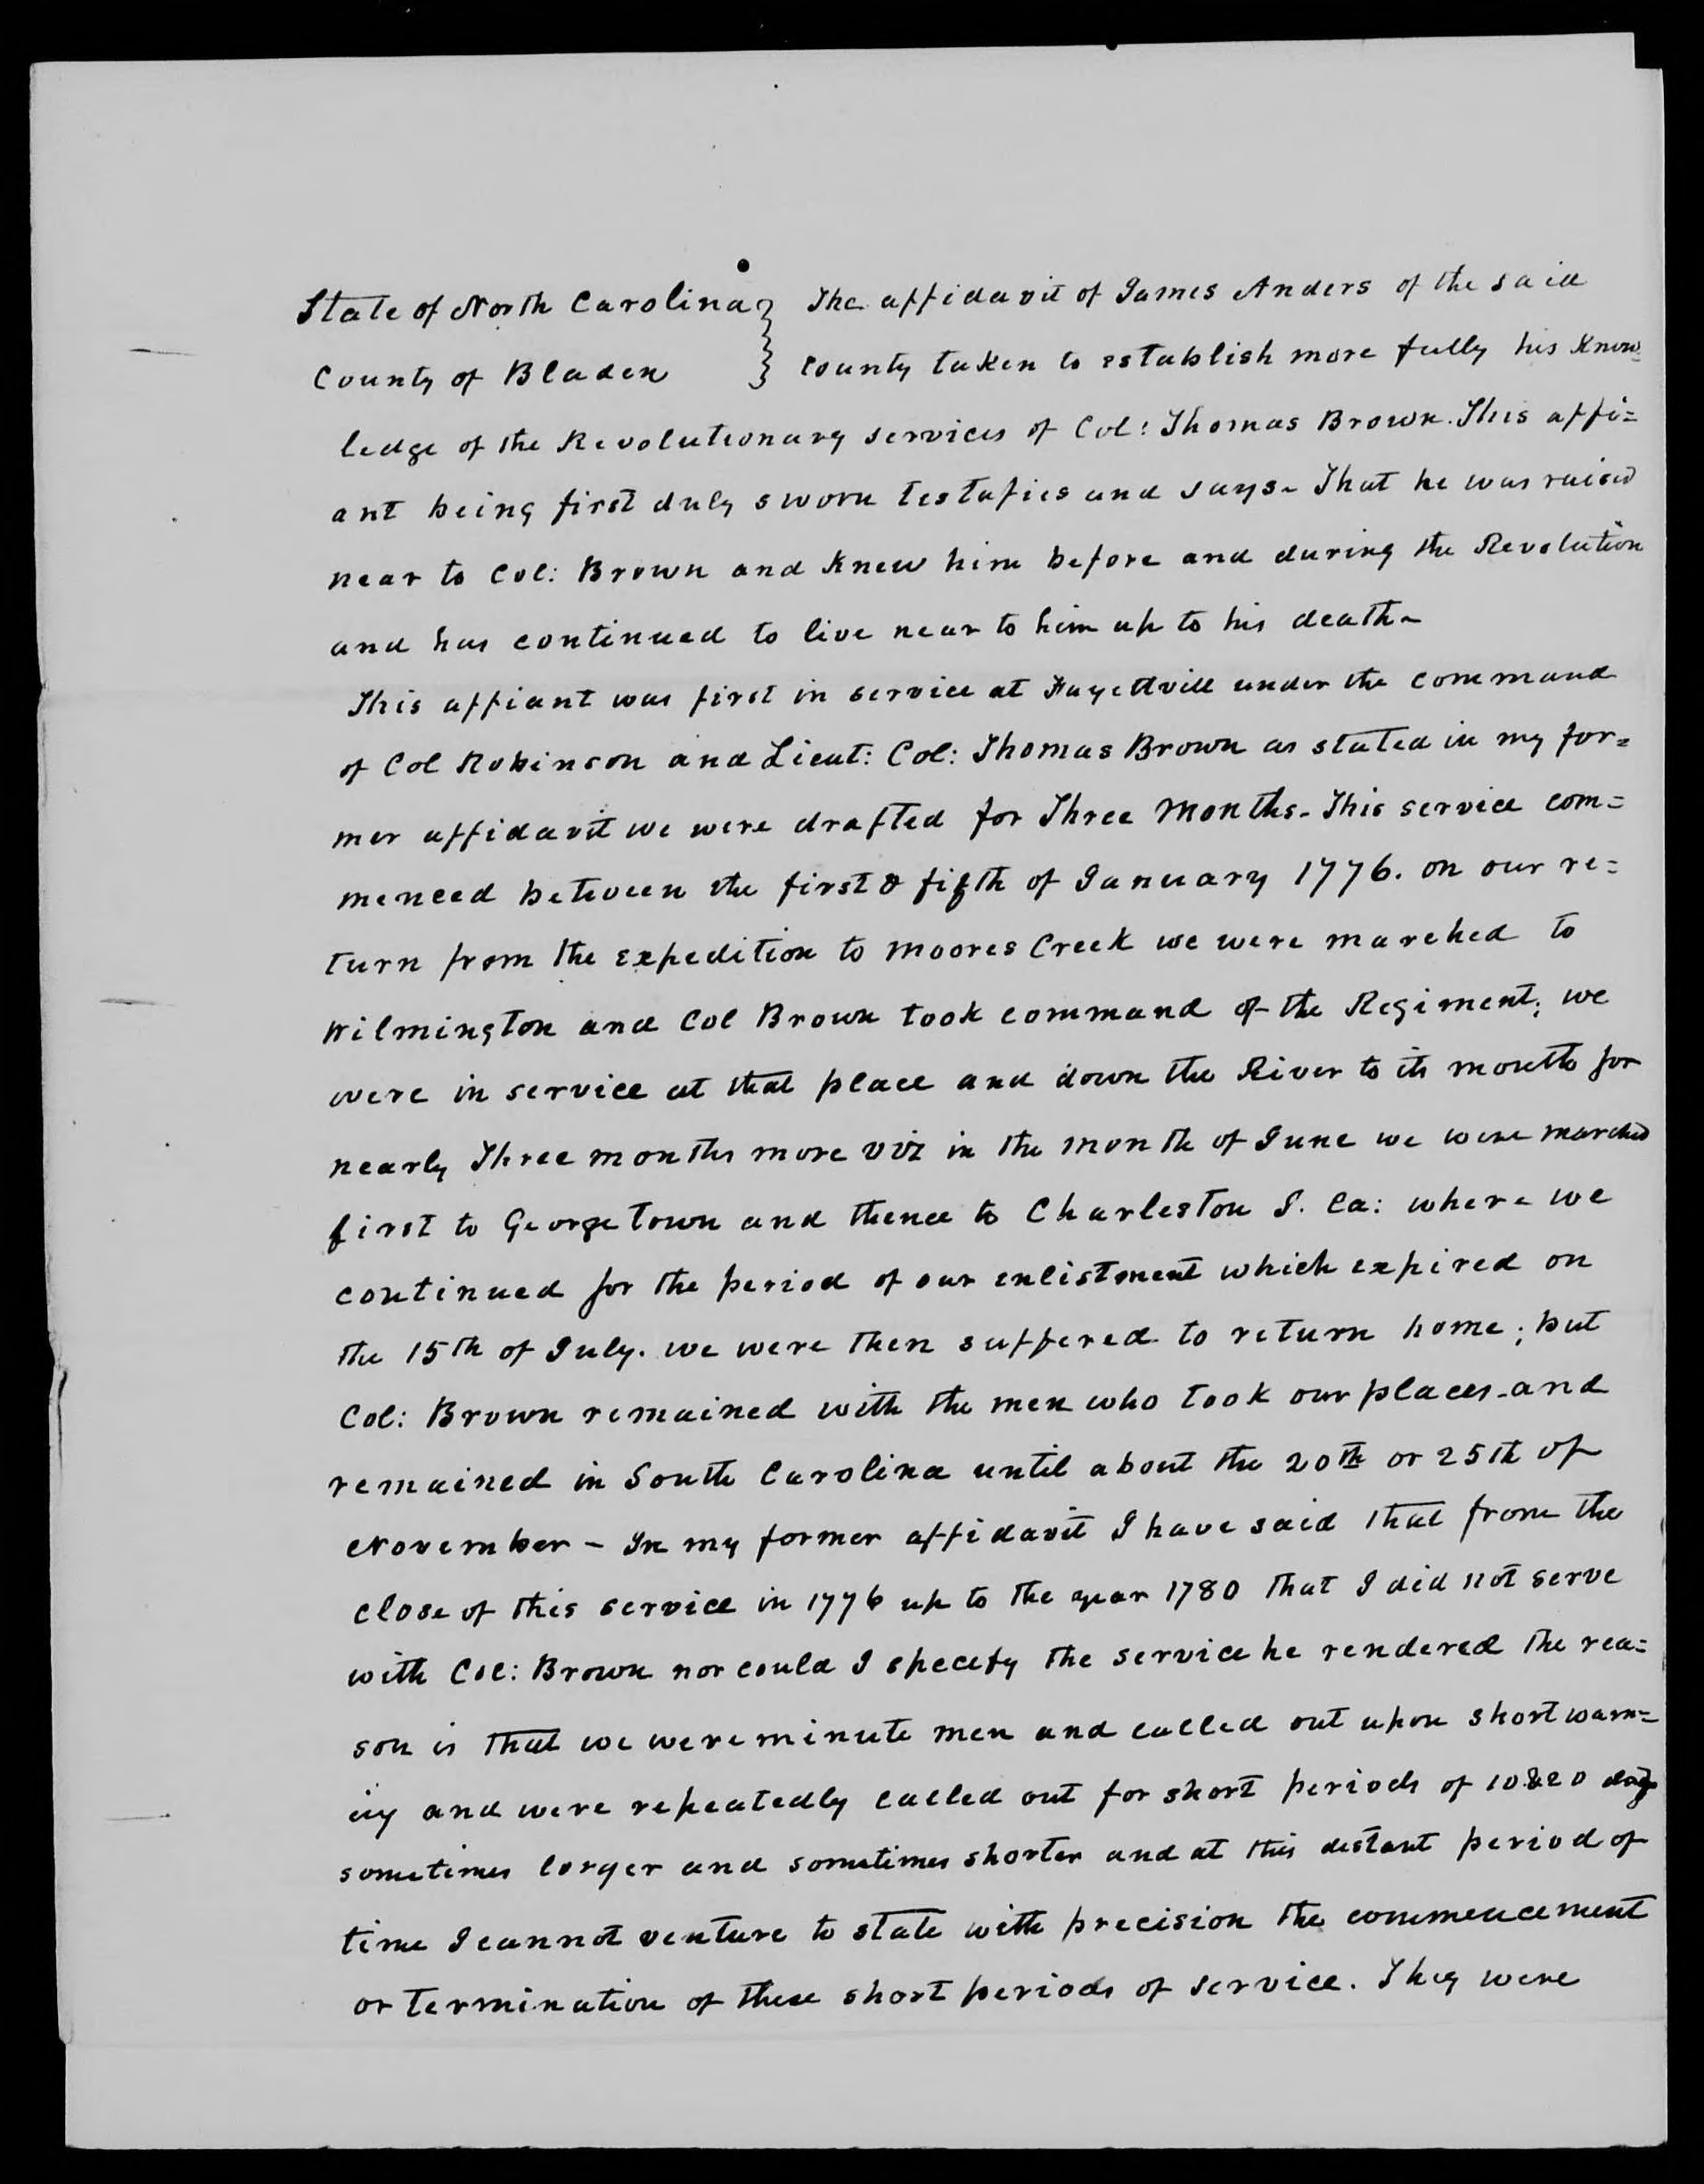 State of North Carolina } The affidavit of James Anders of the said
County of Bladen } county taken to establish more fully his Know=
ledge of the Revolutionary services of Col: Thomas Brown. This affi=
ant being first duly sworn testafies and says - That he was raised
near to Col: Brown and Knew him before and during the Revolution
and has continued to live near to him up to his death -
This affiant was first in service at Fayettvill under the command
of Col Robinson and Lieut: Col: Thomas Brown as stated in my for=
mer affidavit we were drafted for Three Months - This service com=
menced between the first & fifth of January 1776. on our re=
turn from the expedition to Moores Creek we were marched to
Wilmington and Col Brown took command of the Regiment; we
were in service at that place and down the River to its mouth for
nearly Three months more viz in the month of June we were marched
first to George Town and thence to Charleston S. Ca: where we
continued for the period of our enlistment which expired on
the 15th of July. we were then suffered to return home; but
Col: Brown remained with the men who took our places - and
remained in South Carolina until about the 20th or 25th of
November - In my former affidavit I have said that from the
close of this service in 1776 up to the year 1780 that I did not serve
with Col: Brown nor could I specefy the service he rendered the rea=
son is that we were minute men and called out upon short warn=
ing and were repeatedly called out for short periods of 10 & 20 days
sometimes longer and sometimes shorter and at this distant period of
time I cannot venture to state with precision the commencement
or termination of these short periods of service. They were